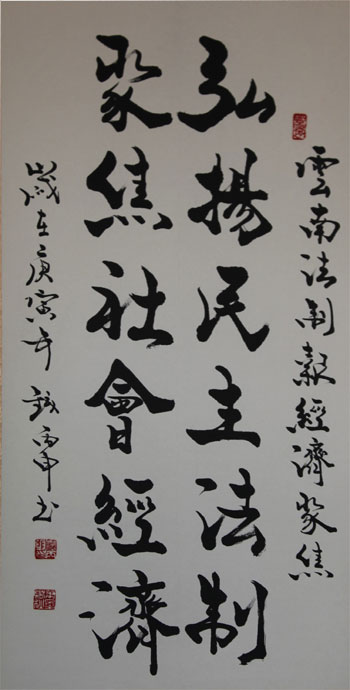 雲南法制報經濟聚焦
弘揚民主法制
聚焦社會經濟
歲在庚寅年 丙申书